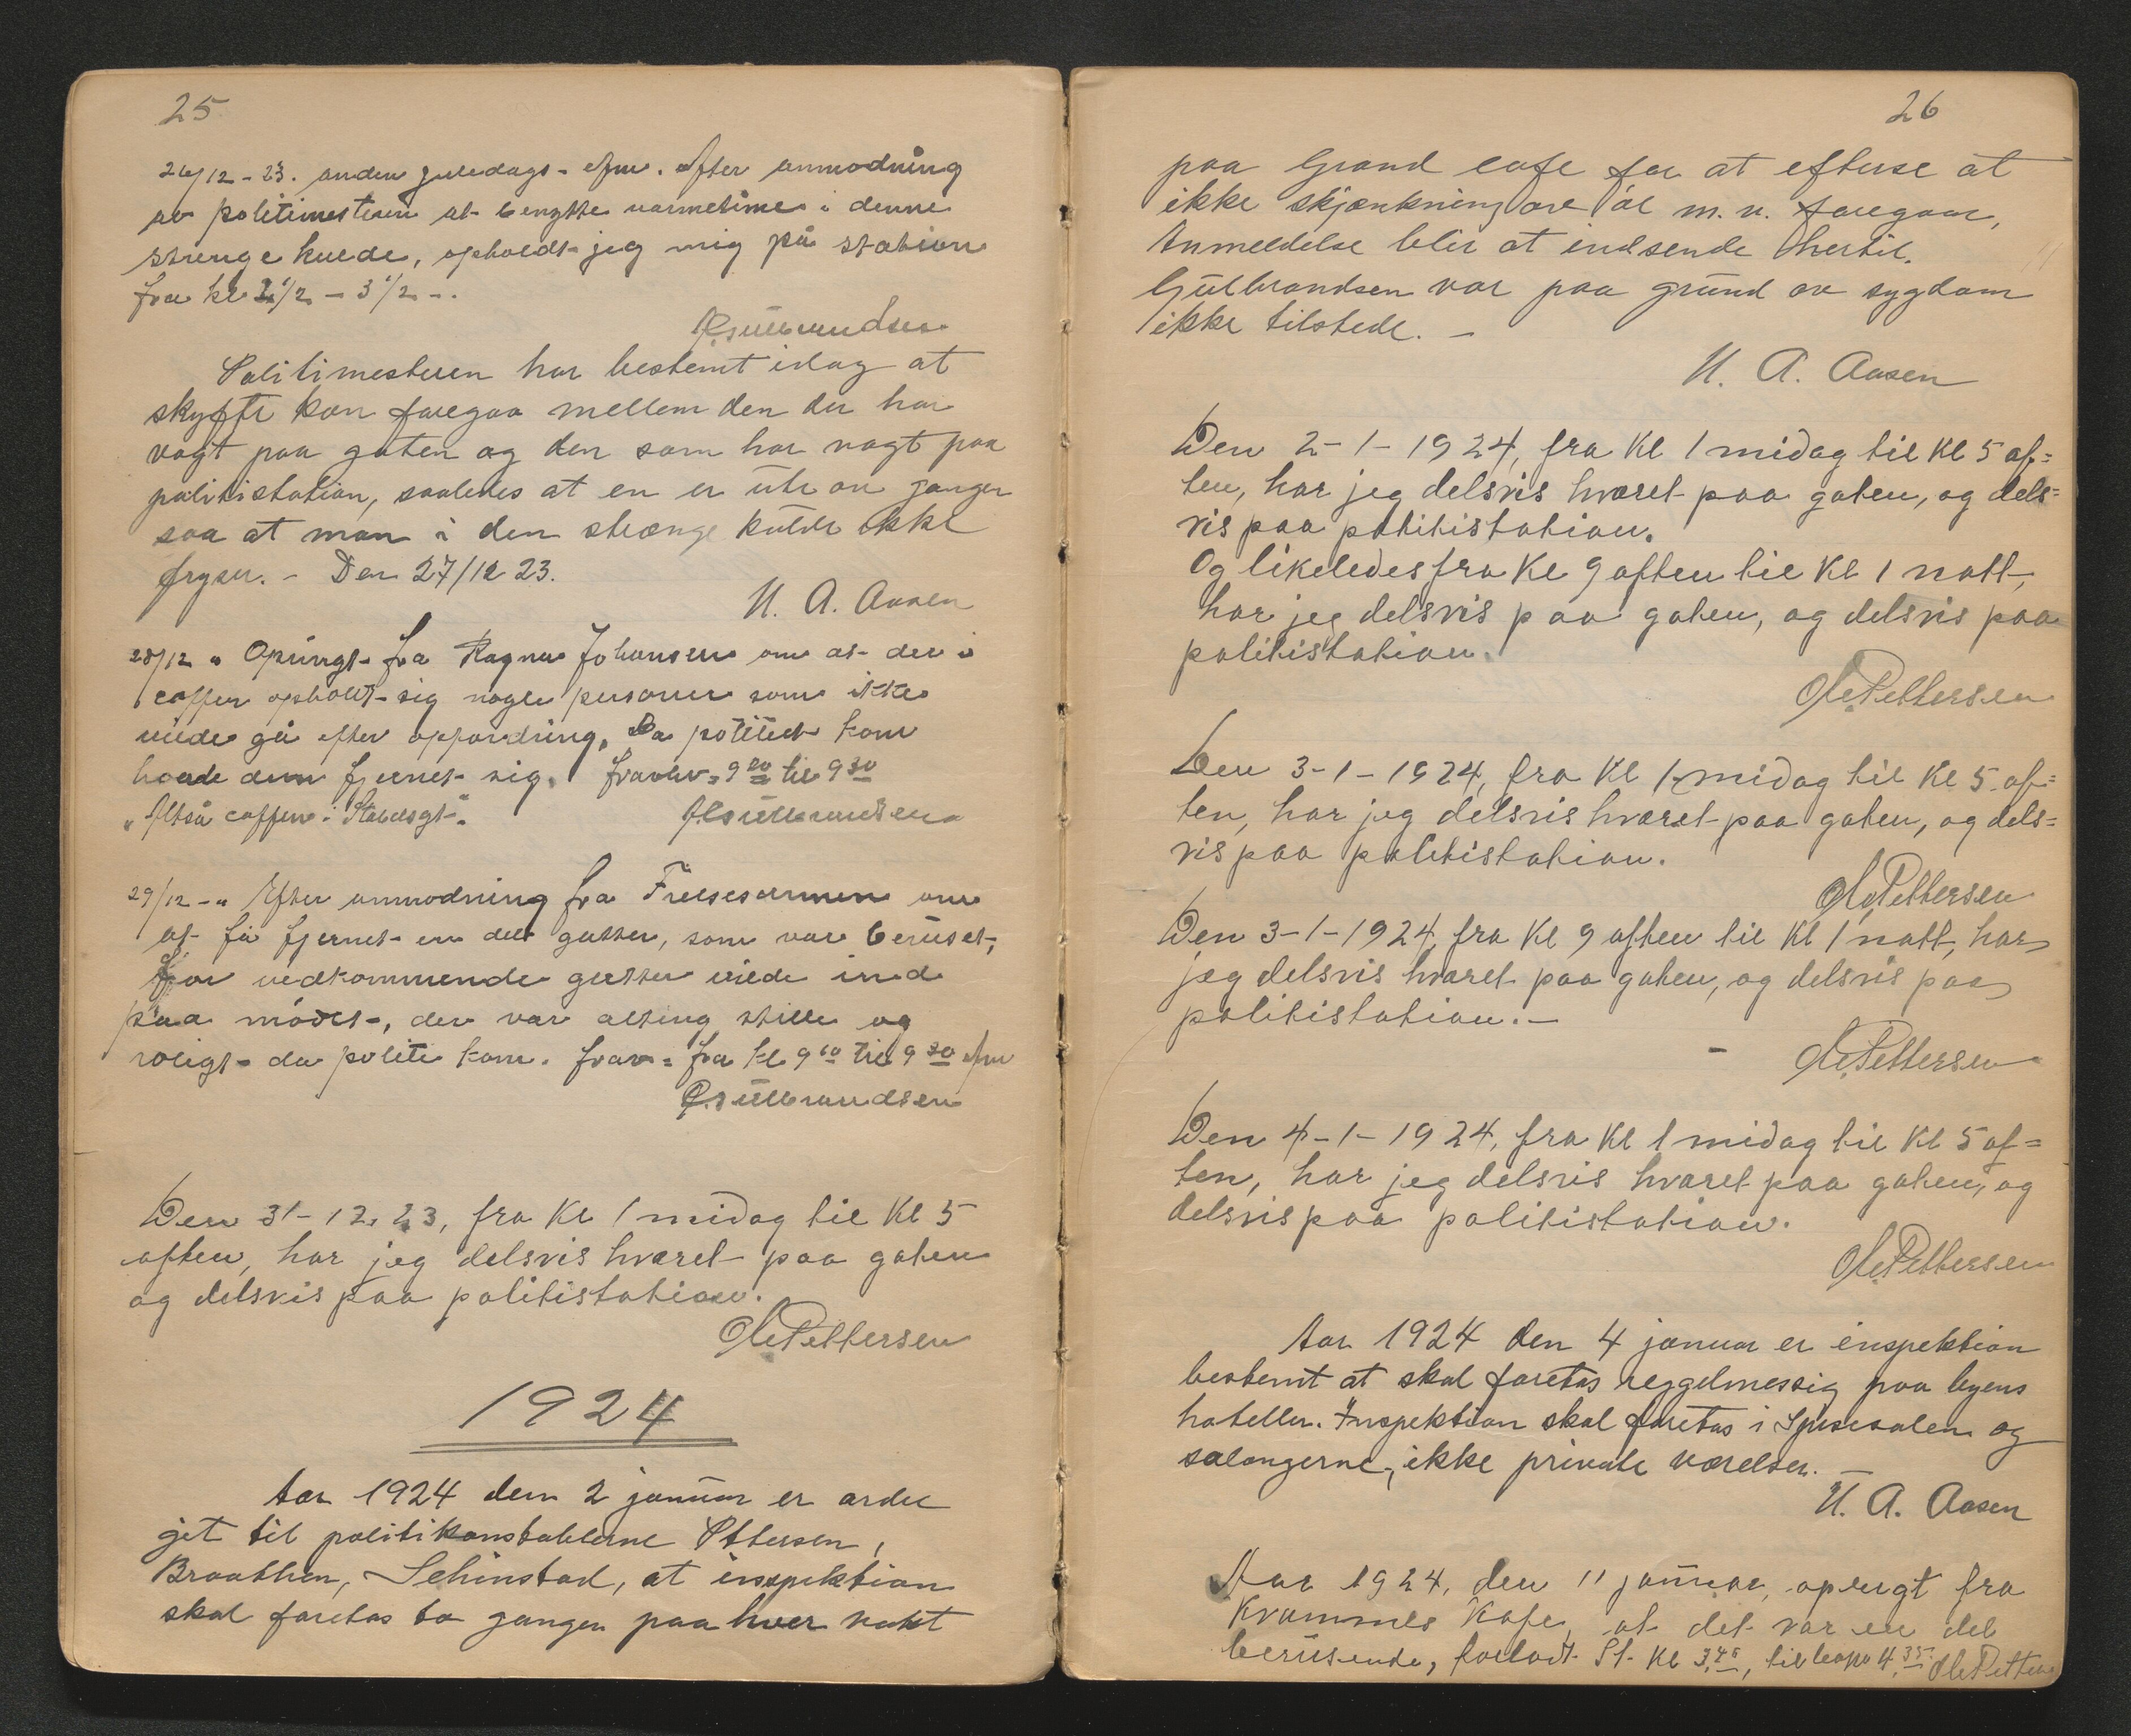 25
26/12-23. anden juledags- efm. efter anmodning
av politimesteren at benytte varmetime i denne
strenge kulde, opholdt jeg mig på station
fra kl 2 1/2 - 3 1/2 -.
Gülbrandsen
Politimesteren har bestemt idag at
skyfte kan foregaa mellem den der har
vagt paa gaten og den som har vagt paa
politistation, saaledes at en er ute en ganger
saa at man i den strænge kulde ikke
fryser. - Den 27/12 23.
U. A. Aasen
28/12 " Opringt fra Ragna Johansen om at der i
caffen opholdt sig nogle personer som ikke
vilde gå efter oppfordring, Da politiet kom
hadde dem fjernet sig. fravær = 9 20 til 9 30
"Altså caffen i Stabdsgt".
Gülbrandsen
29/12 - " Efter anmodning fra Frelsesarmen om
at få fjernet en del gutter, som var beruset,
for vedkommende gutter vilde ind
paa mødet, der var alting stille og
roligt da politi kom. frav = fra kl 9 10 til 9 30 efm
Gülbrandsen
Den 31-12.23, fra Kl 1 midag til Kl 5
aften, har jeg delsvis hværet paa gaten
og delsvis paa politistation.
Ole Pettersen
1924
Aar 1924 den 2 januar er ordre
git til politikonstablerne Pttersen,
Braathen, Sehinstad, at inspektion
skal foretas to ganger paa hver vakt
26
paa Grand cafe for at efterse at
ikke skjænkning av øl m. v. foregaar,
Anmeldelse blir at indsende hertil.
Gülbrandsen var paa grund av sygdom
ikke tilstede. -
U. A. Aasen
Den 2-1-1924, fra Kl 1 midag til Kl 5 af=
ten, har jeg delsvis hværet paa gaten, og dels=
vis paa politistation.
Og likeledes fra Kl 9 aften til Kl 1 natt,
har jeg delsvis paa gaten, og delsvis paa
politistation.
Ole Pettersen
Den 3-1-1924, fra Kl 1 midag til Kl 5. af=
ten, har jeg delsvis hværet paa gaten, og dels=
vis paa politistation.
Ole Pettersen
Den 3-1-1924, fra Kl 9 aften til Kl 1 natt, har
jeg delsvis hværet paa gaten, og delsvis paa
politistation. -
Ole Pettersen
Den 4-1-1924, fra Kl 1 midag til Kl 5 af=
ten, har jeg delsvis hværet paa gaten, og
delsvis paa politistation.
Ole Pettersen
Aar 1924 den 4 januar er inspektion
bestemt at skal foretas reggelmessig paa byens
hoteller. Inspektion skal foretas i Spisesalen og
salongerne, ikke private værelser. -
U. A. Aasen
Aar 1924, den 11 januar, opringt fra
Krammes Kafe, at det var en del
berusende, forlodt St. Kl 3.45, tilbake 4.35 Ole Petters